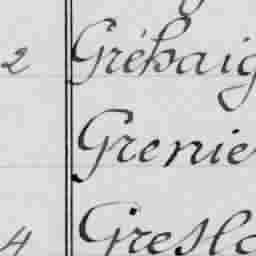 2 Gréhaig
Grenie
4 Greslo